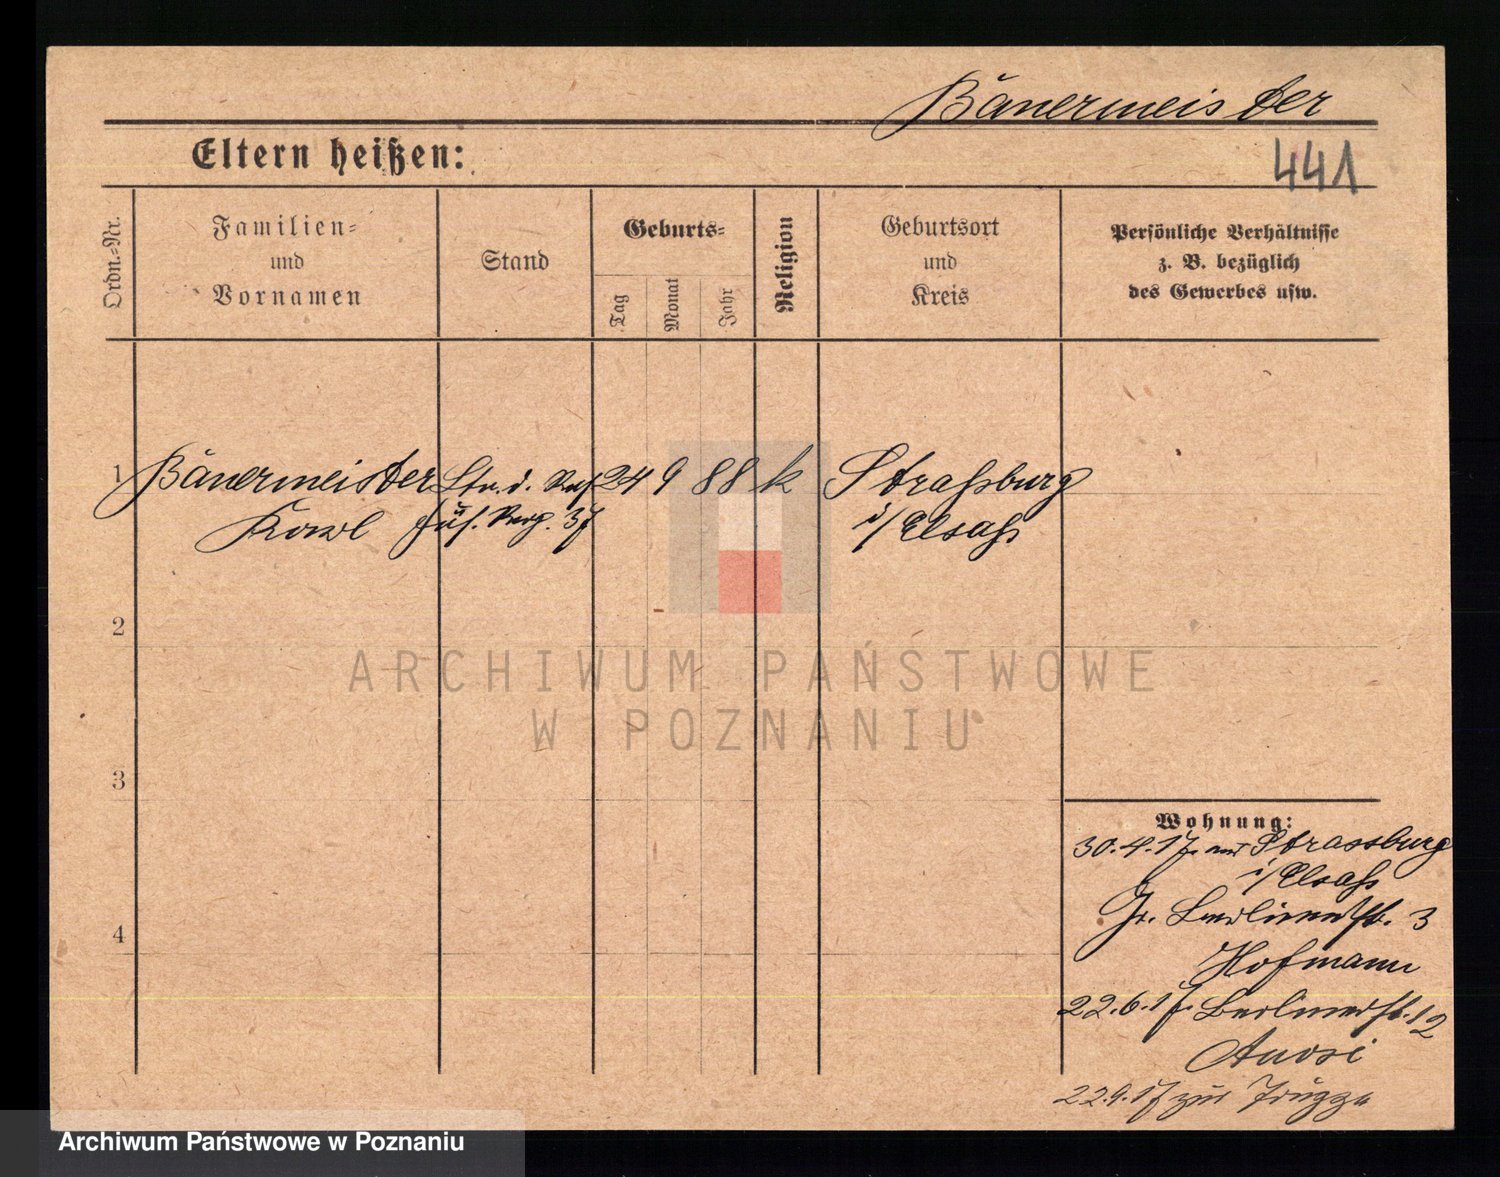 Bäuermeister
441
Eltern heißen:
Ordn.=Nr.
Familien=
und
Vornamen
Stand
Geburts=
Tag
Monat
Jahr
Religion
Geburtsort
und
Kreis
Persönliche Verhältnisse
z. B. bezüglich
des Gewerbes usw.
1 Bäuermeister 24 9 88 k Straßburg
Karl Füs. 37 i/Elsaß
2
3
4
Wohnung:
30.4.17. aus Strassburg
i/Elsaß
Gr. Berlinerstr. 3
Hofmann
22.6.17. Berlinerstr. 12
22.9.17 zur Truppe
ARCHIWUM PAŃSTWOWE
W POZNANIU
Archiwum Państwowe w Poznaniu